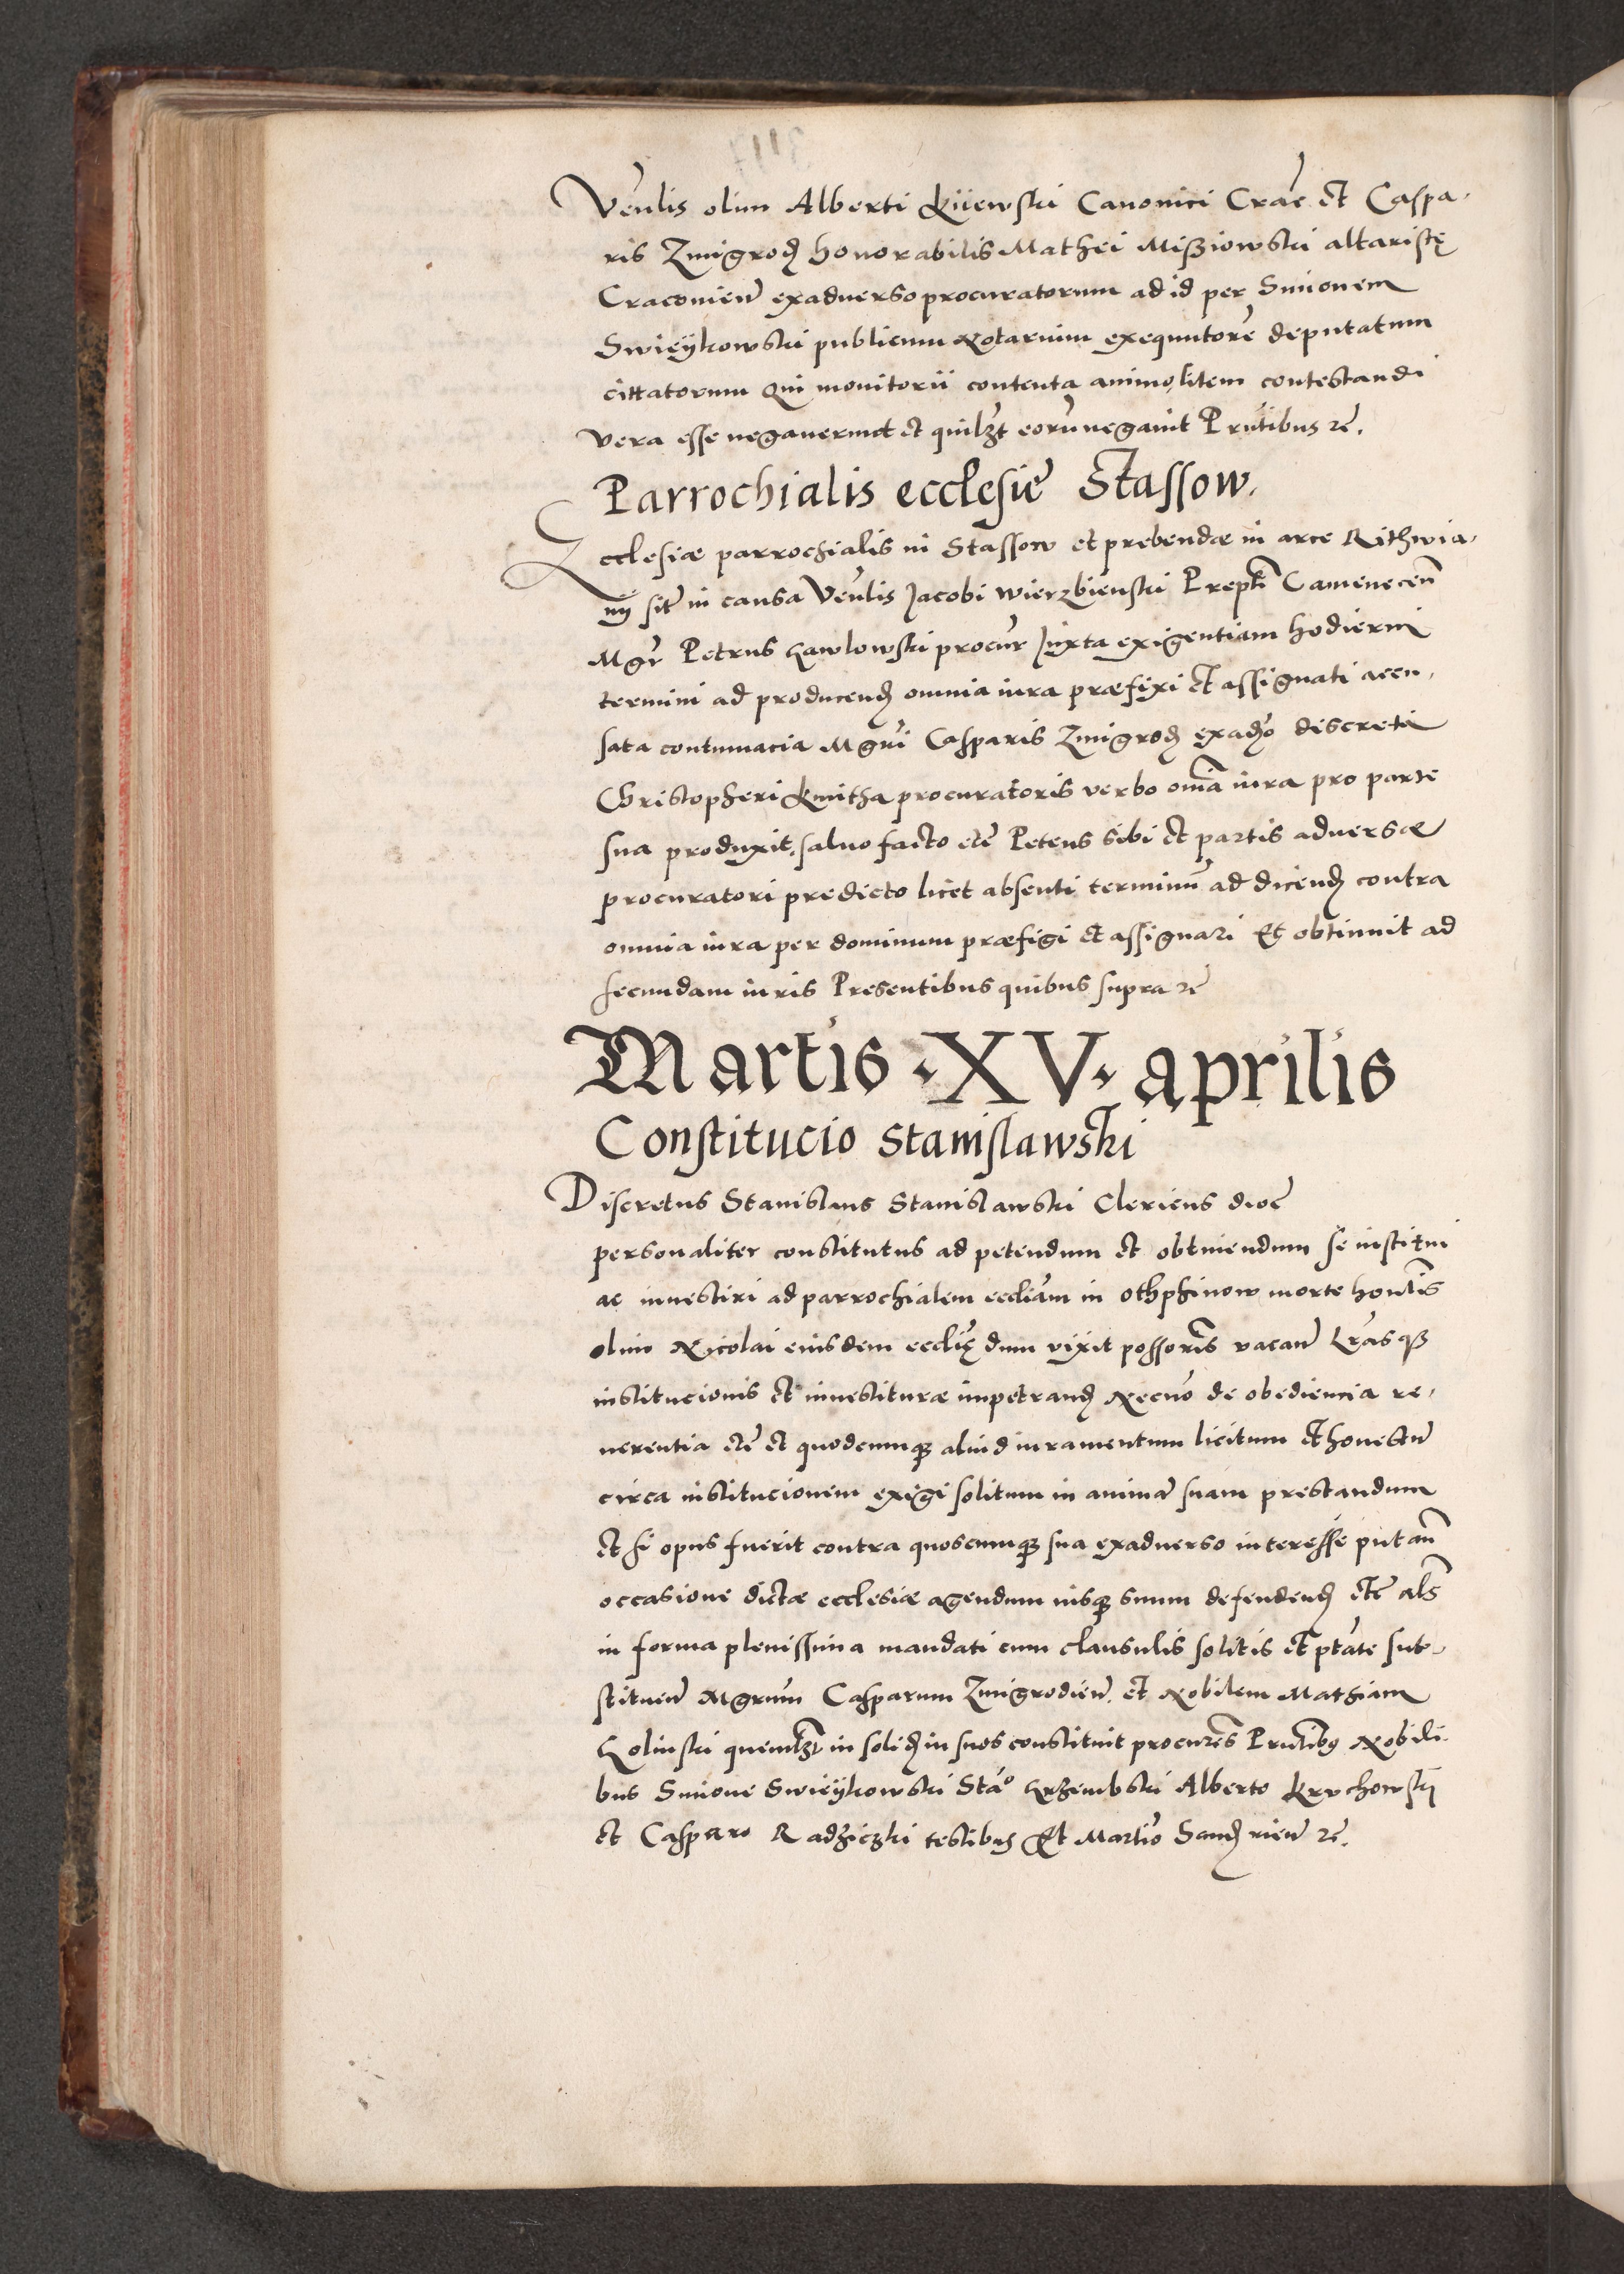 Veñlis olim Alberti Kiiewski Canonici Crac̃ et Caspa,
ris Zmigrod̨ honorabilis Mathei Misziowski altaristę
Craconien̄ exadverso procuratorum ad id per Simonem
Swieÿkowski publicum Notarium exequutorē deputatum
cittatorum Qui monitorii contenta animo litem contestandi
vera esse negaverint et quilȝt eorū negavit Pñtibus ⁊c̃.
Parrochialis ecclesie Stassow.
Ecclesiæ parrochialis in Stassow et prebendæ in arce Rithwia,
nÿ sit̃ in causa Veñlis Jacobi Wierzbienski Prepti Camenecen̄
Mgr̃ Petrus Gawlowski procur̃ Juxta exigentiam hodierni
termini ad producend̨ omnia iura præfixi et assignati accu,
sata contumacia Mgr̃i Casparis Zmigrod̨ exad̨o discreti
Christopheri Kmitha procuratoris verbo om̃ia iura pro parte
sua produxit, salvo facto etc̃ Petens sibi et partis adversæ
procuratori predicto licet absenti terminū ad dicend̨ contra
omnia iura per dominum præfigi et assignari Et obtinuit ad
secundam iuris Presentibus quibus supra ⁊c̃
Martis · XV · aprilis
Constitucio Stanislawski
Discretus Stanislaus Stanislawski Clericus dioc̃
personaliter constitutus ad petendum et obtinendum se institui
ac investiri ad parrochialem eccliam in Othphinow morte honilis
olim Nicolai eiusdem ecclię dum vixit possoris vacan̄ Lras qȝ
institucionis et investituræ impetrand̨ Necnō de obediencia re,
verentia etc̃ et quodcumqȝ aliud iuramentum licitum et honestū
circa institucionem exigi solitum in animā suam prestandum
et si opus fuerit contra quoscumqȝ sua exadverso interesse putan̄
occasione dictæ ecclesiæ agendum iusqȝ suum defendend̨ etc̃ als̃
in forma plenissima mandati cum clausulis solitis et ptate sub,
stituen̄ Mgrum Casparum Zmigrodien̄ et Nobilem Mathiam
Golinski quemlȝt in solid̨ in suos constituit procures Pñtibꝰ Nobili,
bus Simone Swieÿkowski Sta° Grzembski Alberto Krvchowskj
et Casparo Radziczki testibus Et Martio Sand̨rien̄ ⁊c̃.